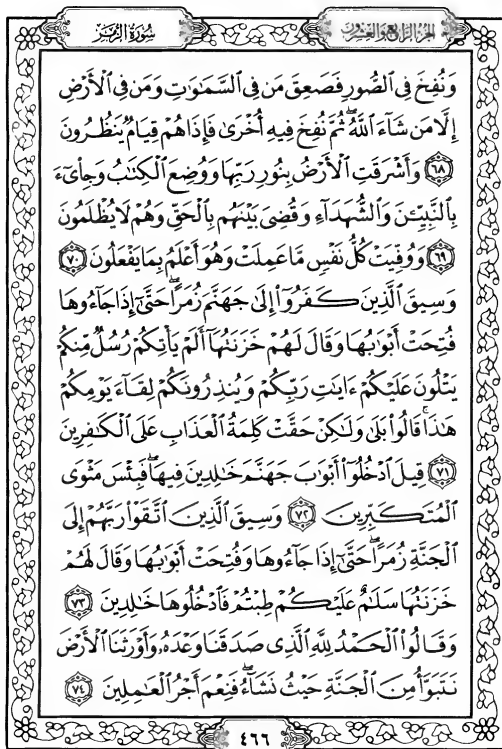 الجزء الرابع والعشرون
سُورَةُ الزُّمَر
وَنُفِخَ فِى ٱلصُّورِ فَصَعِقَ مَن فِى ٱلسَّمَـٰوَٰتِ وَمَن فِى ٱلْأَرْضِ
إِلَّا مَن شَآءَ ٱللَّهُ ۖ ثُمَّ نُفِخَ فِيهِ أُخْرَىٰ فَإِذَا هُمْ قِيَامٌ يَنظُرُونَ
٦٨ وَأَشْرَقَتِ ٱلْأَرْضُ بِنُورِ رَبِّهَا وَوُضِعَ ٱلْكِتَـٰبُ وَجِا۟ىٓءَ
بِٱلنَّبِيِّـۧنَ وَٱلشُّهَدَآءِ وَقُضِىَ بَيْنَهُم بِٱلْحَقِّ وَهُمْ لَا يُظْلَمُونَ
٦٩ وَوُفِّيَتْ كُلُّ نَفْسٍ مَّا عَمِلَتْ وَهُوَ أَعْلَمُ بِمَا يَفْعَلُونَ ٧٠
وَسِيقَ ٱلَّذِينَ كَفَرُوٓا۟ إِلَىٰ جَهَنَّمَ زُمَرًا ۖ حَتَّىٰٓ إِذَا جَآءُوهَا
فُتِحَتْ أَبْوَٰبُهَا وَقَالَ لَهُمْ خَزَنَتُهَآ أَلَمْ يَأْتِكُمْ رُسُلٌ مِّنكُمْ
يَتْلُونَ عَلَيْكُمْ ءَايَـٰتِ رَبِّكُمْ وَيُنذِرُونَكُمْ لِقَآءَ يَوْمِكُمْ
هَـٰذَا ۚ قَالُوا۟ بَلَىٰ وَلَـٰكِنْ حَقَّتْ كَلِمَةُ ٱلْعَذَابِ عَلَى ٱلْكَـٰفِرِينَ
٧١ قِيلَ ٱدْخُلُوٓا۟ أَبْوَٰبَ جَهَنَّمَ خَـٰلِدِينَ فِيهَا ۖ فَبِئْسَ مَثْوَى
ٱلْمُتَكَبِّرِينَ ٧٢ وَسِيقَ ٱلَّذِينَ ٱتَّقَوْا۟ رَبَّهُمْ إِلَى
ٱلْجَنَّةِ زُمَرًا ۖ حَتَّىٰٓ إِذَا جَآءُوهَا وَفُتِحَتْ أَبْوَٰبُهَا وَقَالَ لَهُمْ
خَزَنَتُهَا سَلَـٰمٌ عَلَيْكُمْ طِبْتُمْ فَٱدْخُلُوهَا خَـٰلِدِينَ ٧٣
وَقَالُوا۟ ٱلْحَمْدُ لِلَّهِ ٱلَّذِى صَدَقَنَا وَعْدَهُۥ وَأَوْرَثَنَا ٱلْأَرْضَ
نَتَبَوَّأُ مِنَ ٱلْجَنَّةِ حَيْثُ نَشَآءُ ۖ فَنِعْمَ أَجْرُ ٱلْعَـٰمِلِينَ ٧٤
٤٦٦